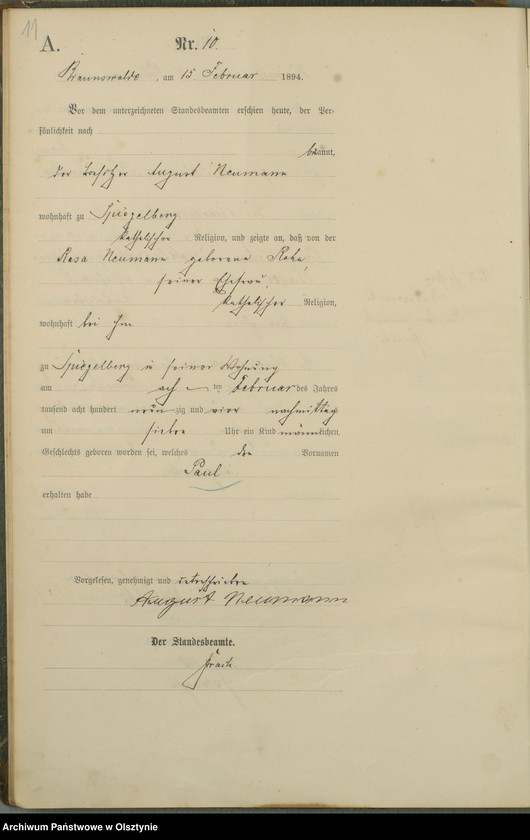 11
A. Nr. 10.
Braunswalde, am 15 Februar 1894.
Vor dem unterzeichneten Standesbeamten erschien heute, der Per-
sönlichkeit nach
bekannt,
der Besitzer August Neumann
wohnhaft zu Spiegelberg
katholischer Religion, und zeigte an, daß von der
Rosa Neumann geborene
seiner Ehefrau,
katholischer Religion,
wohnhaft bei ihm
zu Spiegelberg in seiner Wohnung
am ten Februar des Jahres
tausend acht hundert neunzig und vier nachmittag
um sieben Uhr ein Kind männlichen
Geschlechts geboren worden sei, welches den Vornamen
Paul
erhalten habe
Vorgelesen, genehmigt und unterschrieben
August Neumann
Der Standesbeamte.
Archiwum Państwowe w Olsztynie